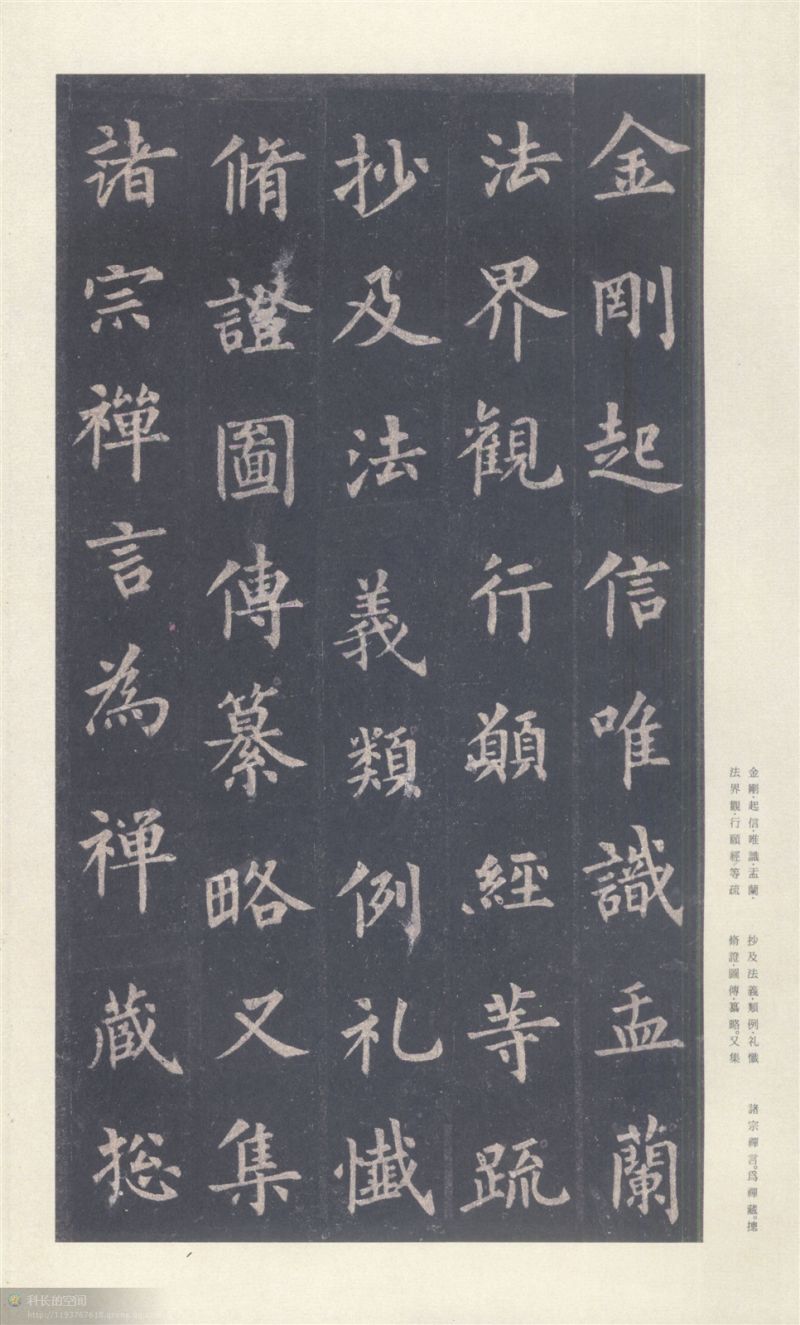 金剛起信唯識盂蘭
法界觀行願經等疏
抄及法義類例礼懺
脩證圖傳纂略又集
諸宗禪言為禪蔵捴
金剛·起信·唯識·盂蘭·
法界觀·行願經等疏
抄及法義·類例·礼懺
脩證·圖傳·纂略。又集
諸宗禪言。爲禪藏。摠
科长的空间